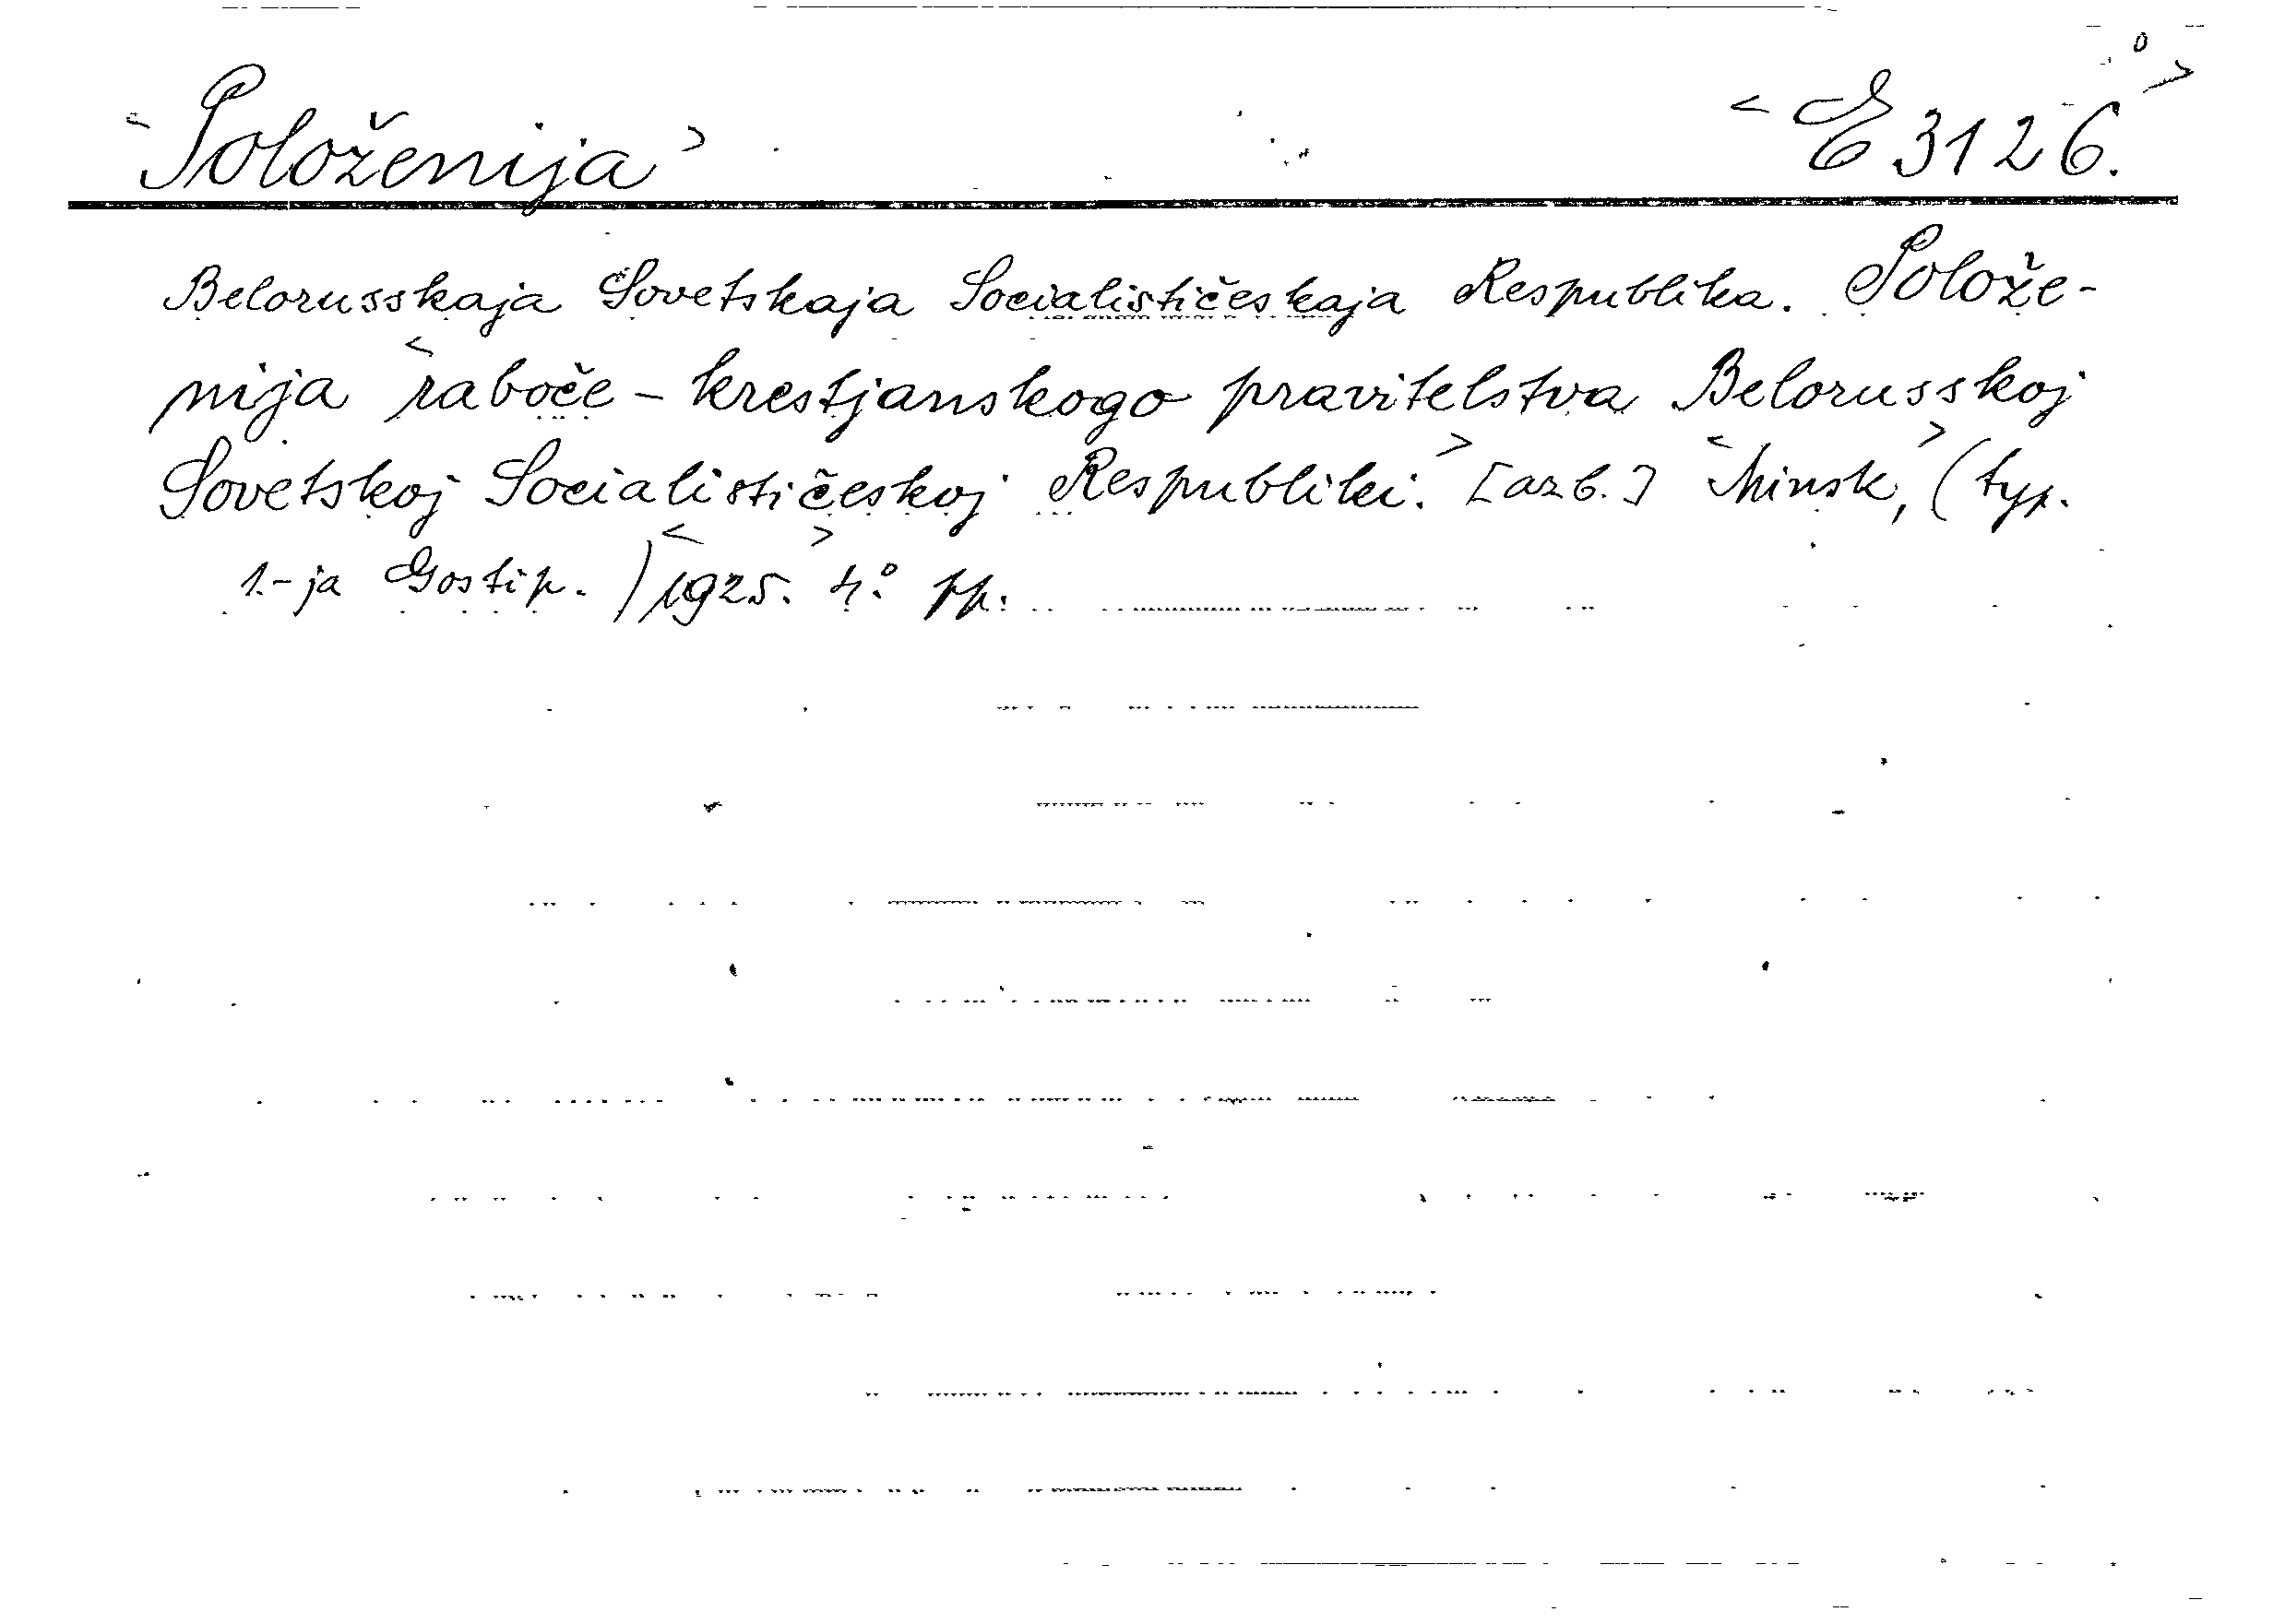 <Položenija> <E 3126.>
Belorusskaja Sovetskaja Socialističeskaja Respublika. Polože-
nija <raboče-krestjanskogo pravitelstva Belorusskoj
Sovetskoj Socialističeskoj Respubliki.> [azb.] <Minsk,> (typ.
1.-ja Gostip.) <1925.> 4.° pp.